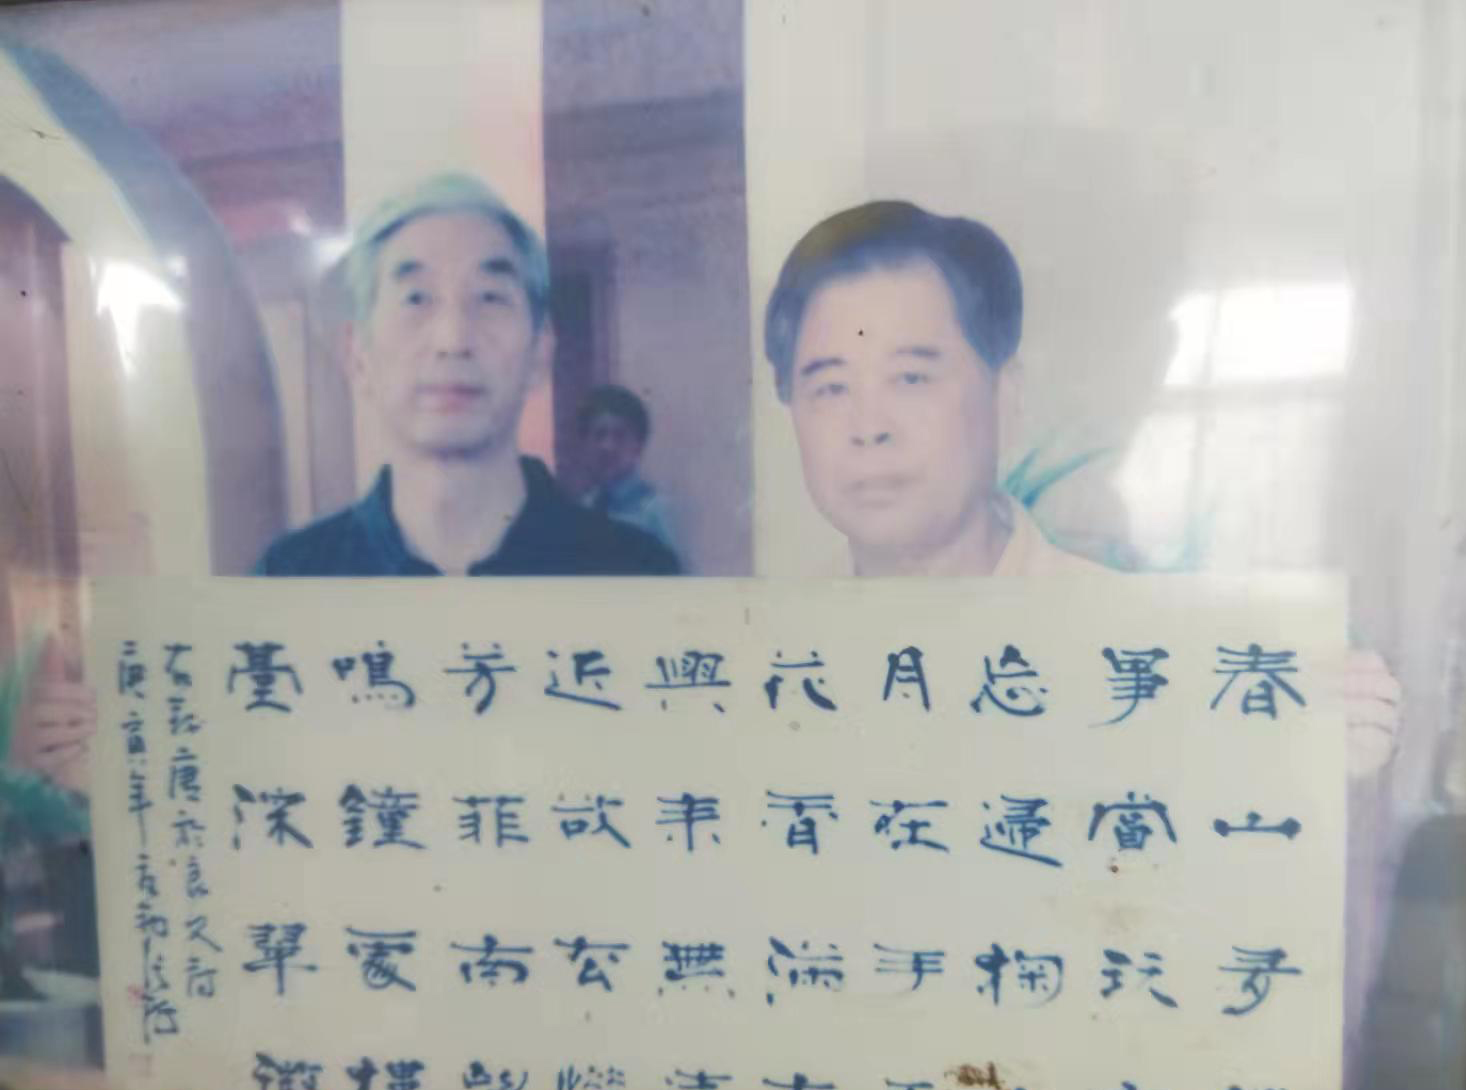 春山多
事賞玩
忘歸掬
月在手
花香滿
興来無
近欲去
芳菲南
鳴鐘處樓
臺深翠微
右錄唐於良史詩
庚寅年